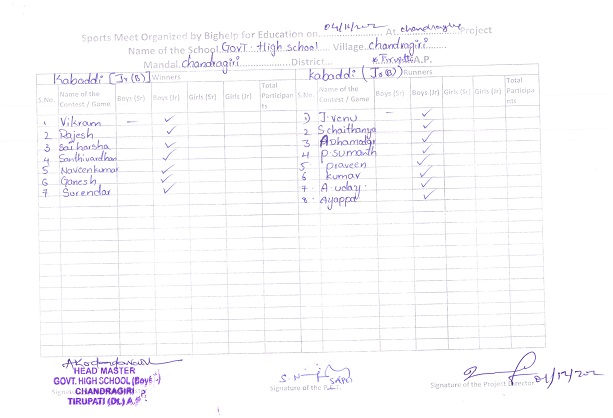 Sports Meet Organized by Bighelp for Education on 04/12/202 At chandragiri Project
Name of the School GOVT. High school Village chandragiri
Mandal chandragiri District Tirupati A.P.
Kabaddi [Jr (B)] Winners
Kabaddi (Jr (B)) Runners
S.No. Name of the Contest / Game Boys (Sr) Boys (Jr) Girls (Sr) Girls (Jr) Total Participants
S.No Name of the Contest / Game Boys (Sr) Boys (Jr) Girls (Sr) Girls (Jr) Total Participants
1 Vikram – ✓
2 Rajesh ✓
3 Sai harsha ✓
4 Santhivardhan ✓
5 Naveenkumar ✓
6 Ganesh ✓
7 Surendar ✓
1) J. venu – ✓
2 S chaithanya ✓
3 A Dhamodar ✓
4 p. sumanth ✓
5 praveen ✓
6 kumar ✓
7 A. uday ✓
8 Ayappa ✓
HEAD MASTER
GOVT. HIGH SCHOOL (Boys)
CHANDRAGIRI
TIRUPATI (Dt.) A.P
Signature of the P.E.T.
Signature of the Project Director
04/12/202